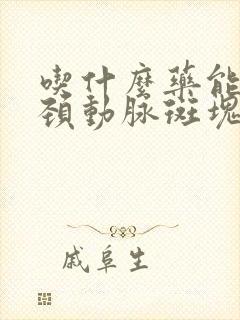 喫什麼藥能
頚動脉斑塊
戚阜生